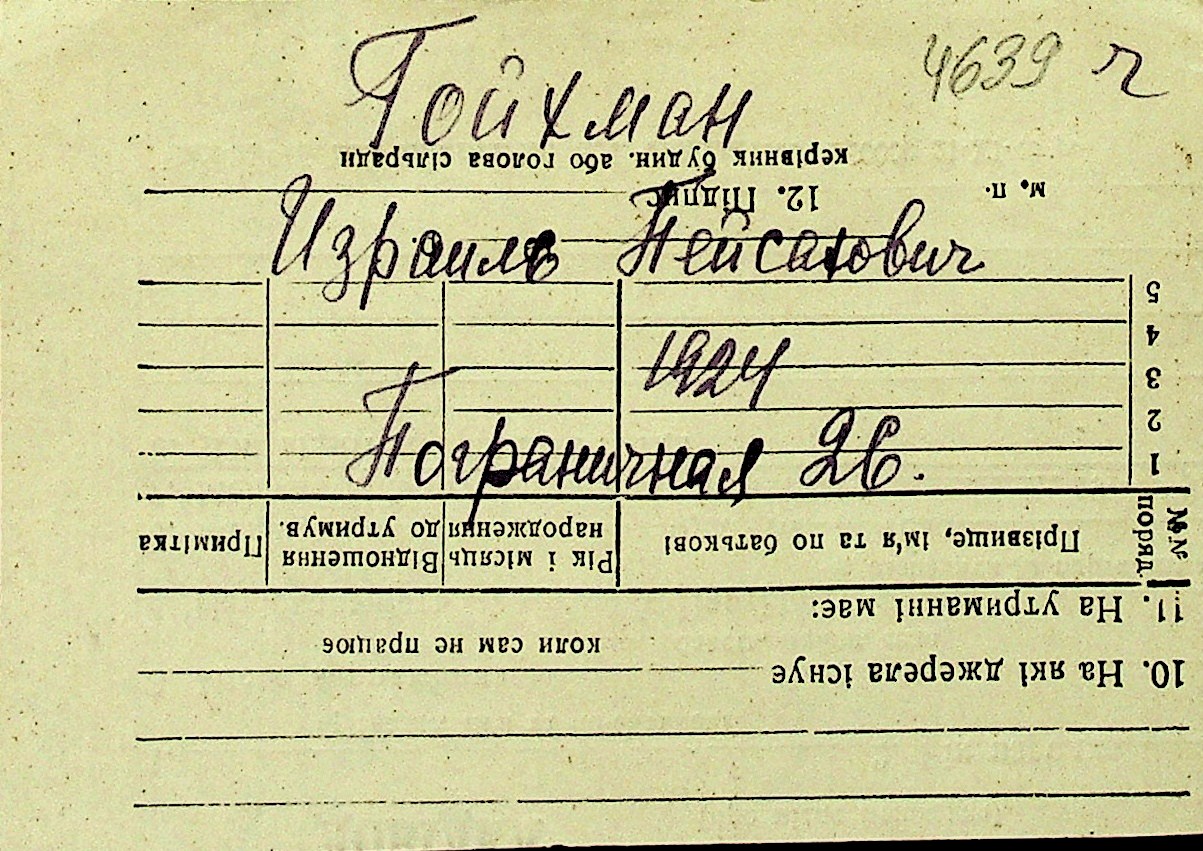 4639 г
Гойхман
Израиль Пейсахович
1924
Пограничная 26.
10. На які джерела існує
коли сам не працює
11. На утриманні має:
№№ поряд. Прізвище, ім'я та по батькові Рік і місяць народження Відношення до утримув. Примітка
1
2
3
4
5
м. п. 12. Підпис
керівник будин. або голова сільради